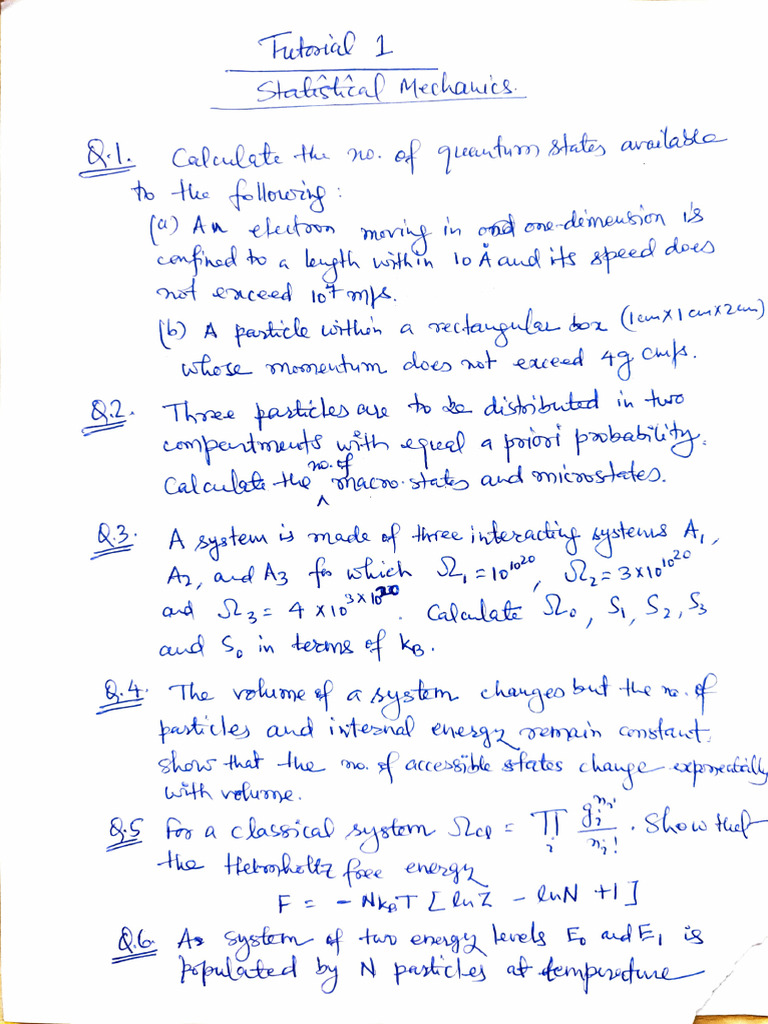 Tutorial 1
Statistical Mechanics.
Q.1. Calculate the no. of quantum states available
to the following:
(a) An electron moving in one-dimension is
confined to a length within 10 Å and its speed does
not exceed 10⁷ m/s.
(b) A particle within a rectangular box (1cm×1cm×2cm)
whose momentum does not exceed 4g cm/s.
Q.2. Three particles are to be distributed in two
compartments with equal a priori probability.
Calculate the no. of macro-states and microstates.
Q.3. A system is made of three interacting systems A₁,
A₂, and A₃ for which Ω₁ = 10^10^20, Ω₂ = 3×10^10^20
and Ω₃ = 4×10^3×10^20. Calculate Ω₀, S₁, S₂, S₃
and S₀ in terms of k_B.
Q.4. The volume of a system changes but the no. of
particles and internal energy remain constant.
Show that the no. of accessible states change exponentially
with volume.
Q.5 For a classical system Ω_cl = ∏_i g_i^n_i / n_i! . Show that
the Helmholtz free energy
F = - Nk_BT [lnZ - lnN + 1]
Q.6. A system of two energy levels E₀ and E₁ is
populated by N particles at temperature